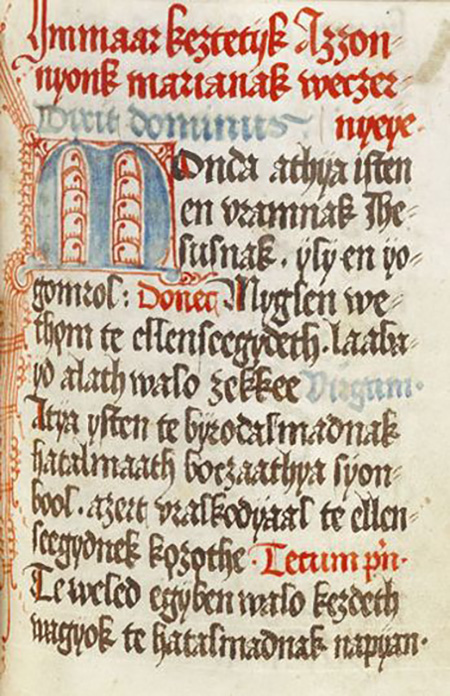 Immaar keztetijk Azzon-
nyonk marianak weczer-
Dixit dominus nyeye.
Monda athya isten
en vramnak Ihe-
susnak. yly en yo-
gomrol: Donec Myglen we-
thom te ellenseegydeth. laaba-
yd alath walo zekkee Virgam.
Atya ysten te byrodalmadnak
hatalmaath boczaathya syon-
bool. azert vraskodyaal te ellen-
seegydnek kozothe. Tecum prn.
Te weled egyben walo kezdeth
wagyok te hatalmadnak napyan.